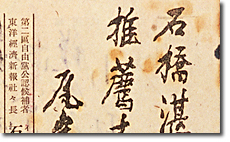 石橋湛
推薦
尾
第二區自由黨公認候補者
東洋經濟新報社々長
石